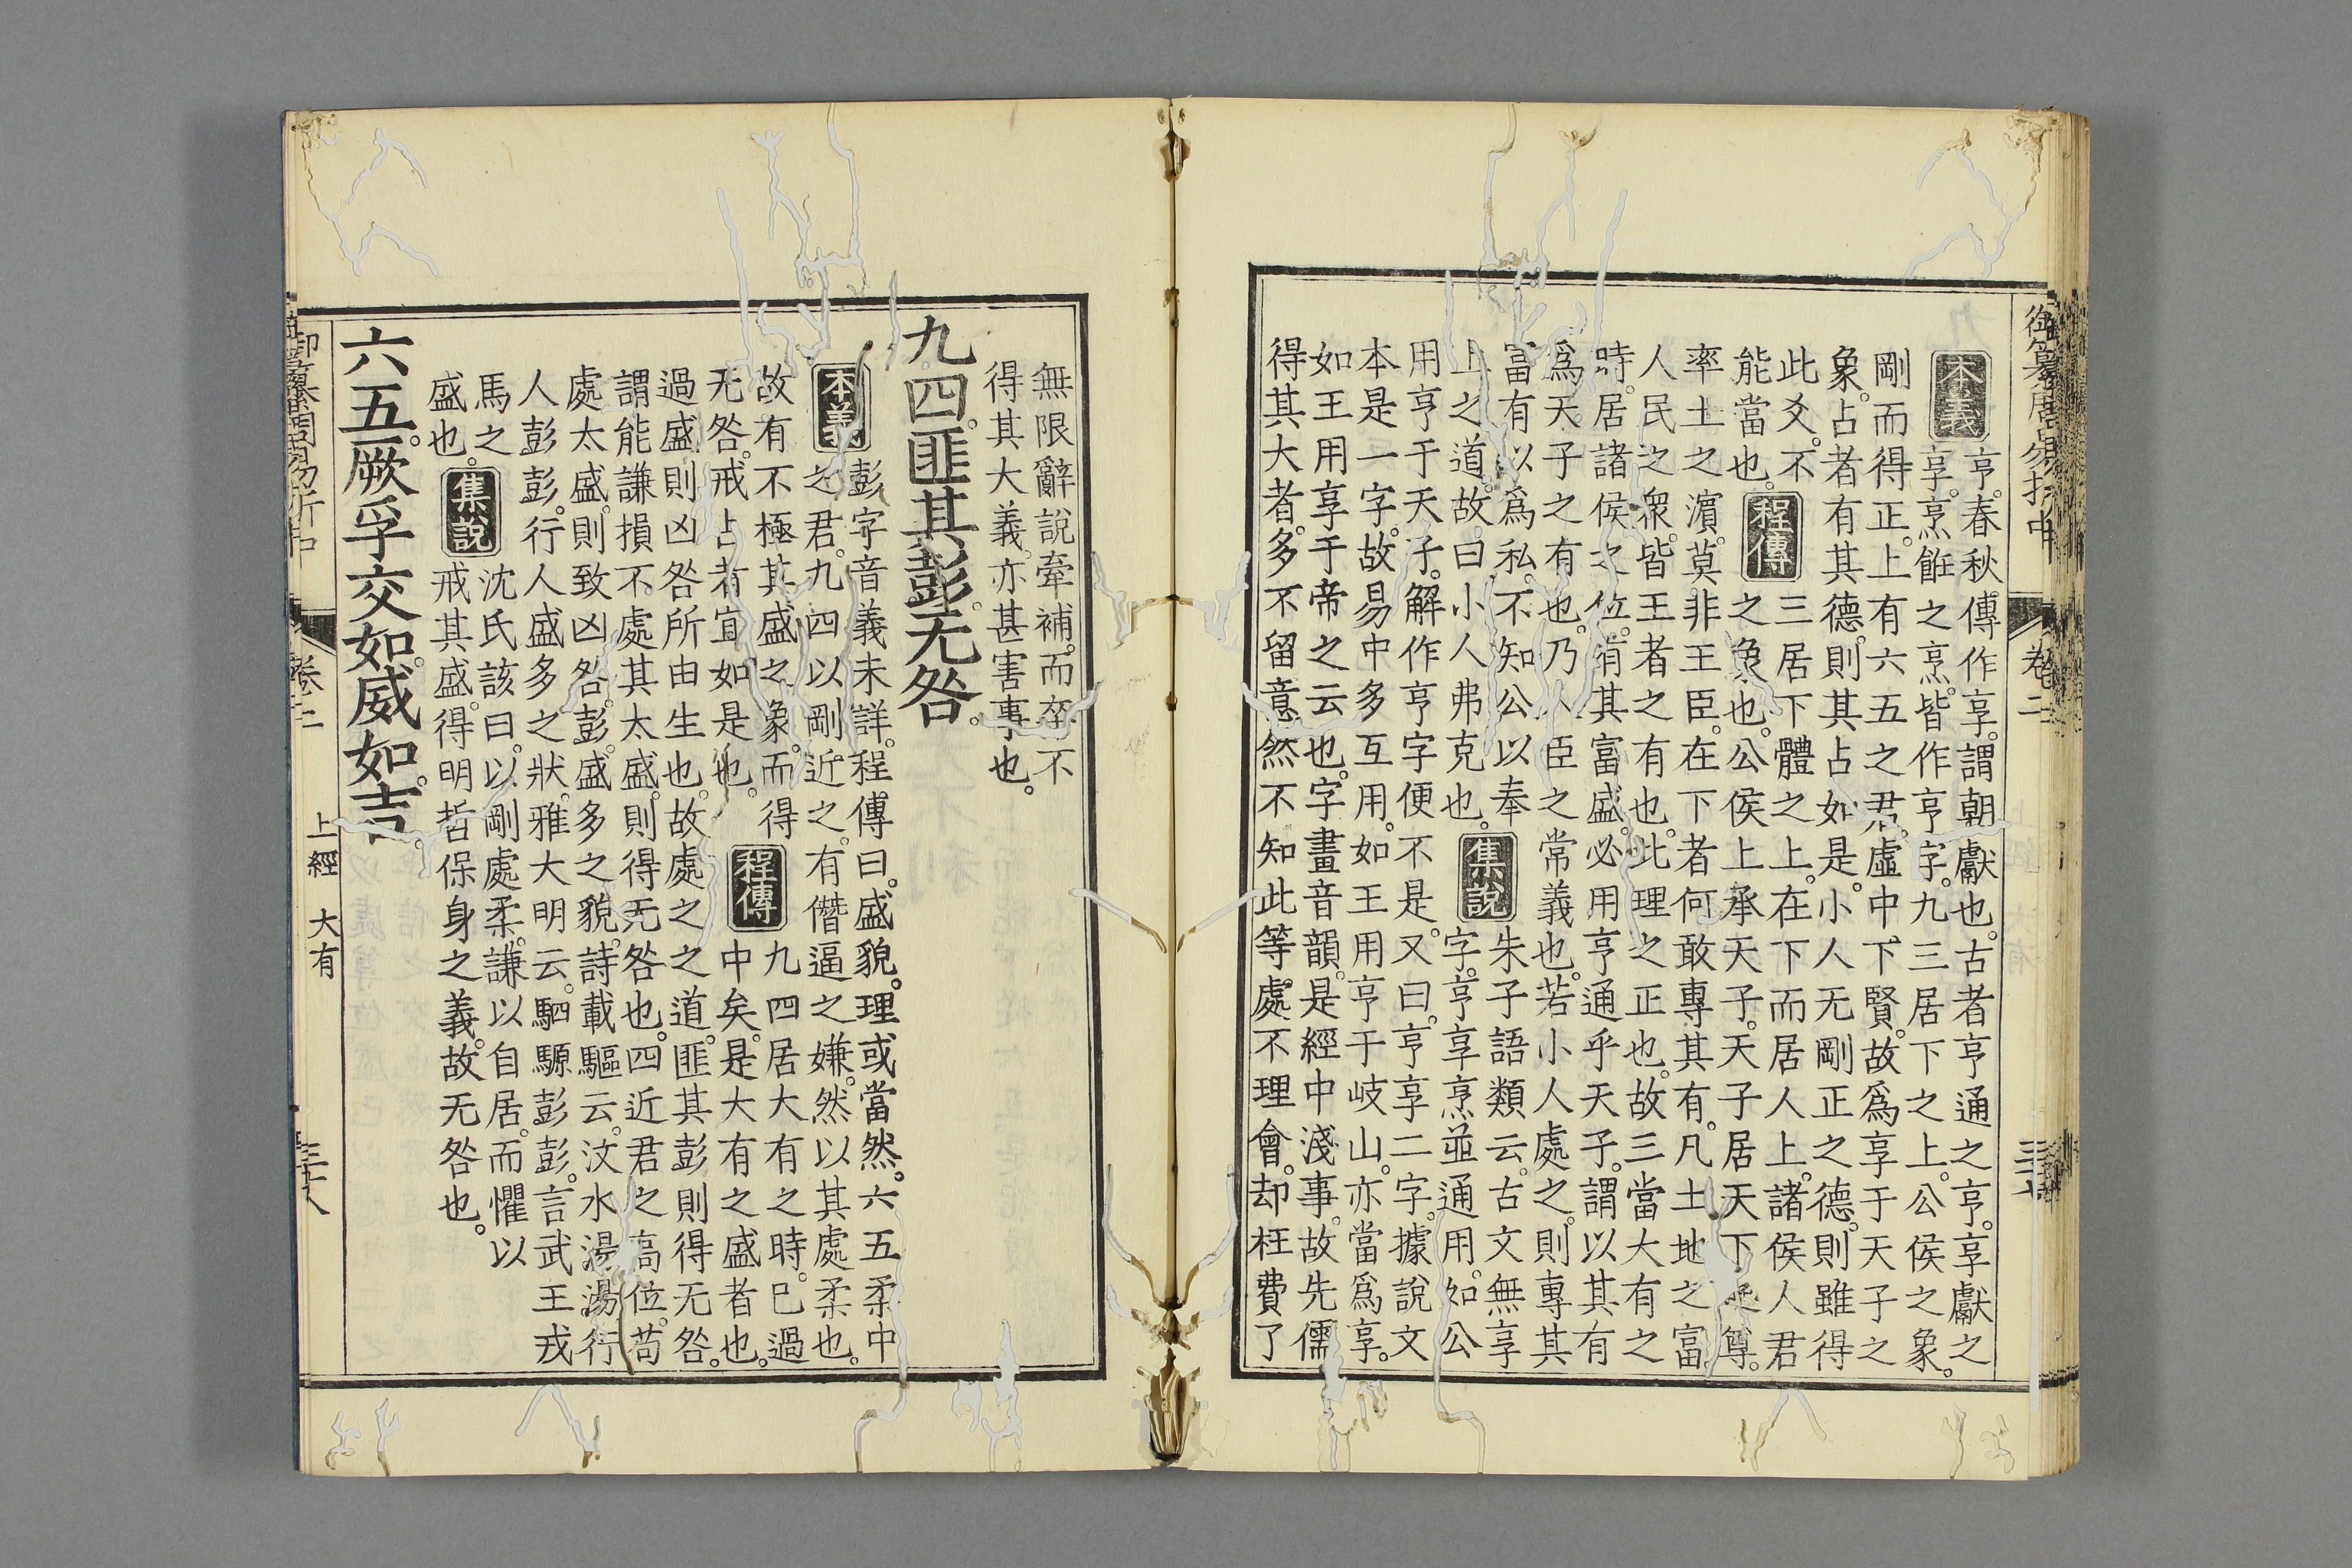 御纂周易折中 卷二 三十七
本義
亨。春秋傳作享。謂朝獻也。古者亨通之亨。享獻之
享。烹飪之烹。皆作亨字。九三居下之上。公侯之象。
剛而得正。上有六五之君。虛中下賢。故爲享于天子之
象。占者有其德。則其占如是。小人无剛正之德。則雖得
此爻。不
能當也。
程傳
三居下體之上。在下而居人上。諸侯人君
之象也。公侯上承天子。天子居天下之尊。
率土之濱。莫非王臣。在下者何敢專其有。凡土地之富。
人民之衆。皆王者之有也。此理之正也。故三當大有之
時。居諸侯之位。有其富盛。必用亨通乎天子。謂以其有
爲天子之有也。乃人臣之常義也。若小人處之。則專其
富有以爲私。不知公以奉
上之道。故曰小人弗克也。
集說
朱子語類云。古文無享
字。亨享烹並通用。如公
用亨于天子。解作亨字便不是。又曰。亨享二字。據說文
本是一字。故易中多互用。如王用亨于岐山。亦當爲享。
如王用享于帝之云也。字畫音韻。是經中淺事。故先儒
得其大者。多不留意。然不知此等處。不理會。却枉費了
無限辭說牽補。而卒不
得其大義。亦甚害事也。
九四。匪其彭。无咎。
本義
彭字音義未詳。程傳曰。盛貌。理或當然。六五柔中
之君。九四以剛近之。有僭逼之嫌。然以其處柔也。
故有不極其盛之象。而得
无咎。戒占者宜如是也。
程傳
九四居大有之時。已過
中矣。是大有之盛者也。
過盛則凶咎所由生也。故處之之道。匪其彭則得无咎。
謂能謙損不處其太盛。則得无咎也。四近君之高位。苟
處太盛。則致凶咎。彭。盛多之貌。詩載驅云。汶水湯湯。行
人彭彭。行人盛多之狀。雅大明云。駟騵彭彭。言武王戎
馬之
盛也。
集說
沈氏該曰。以剛處柔。謙以自居。而懼以
戒其盛。得明哲保身之義。故无咎也。
六五。厥孚交如。威如。吉。
御纂周易折中 卷二 上經 大有 三十八